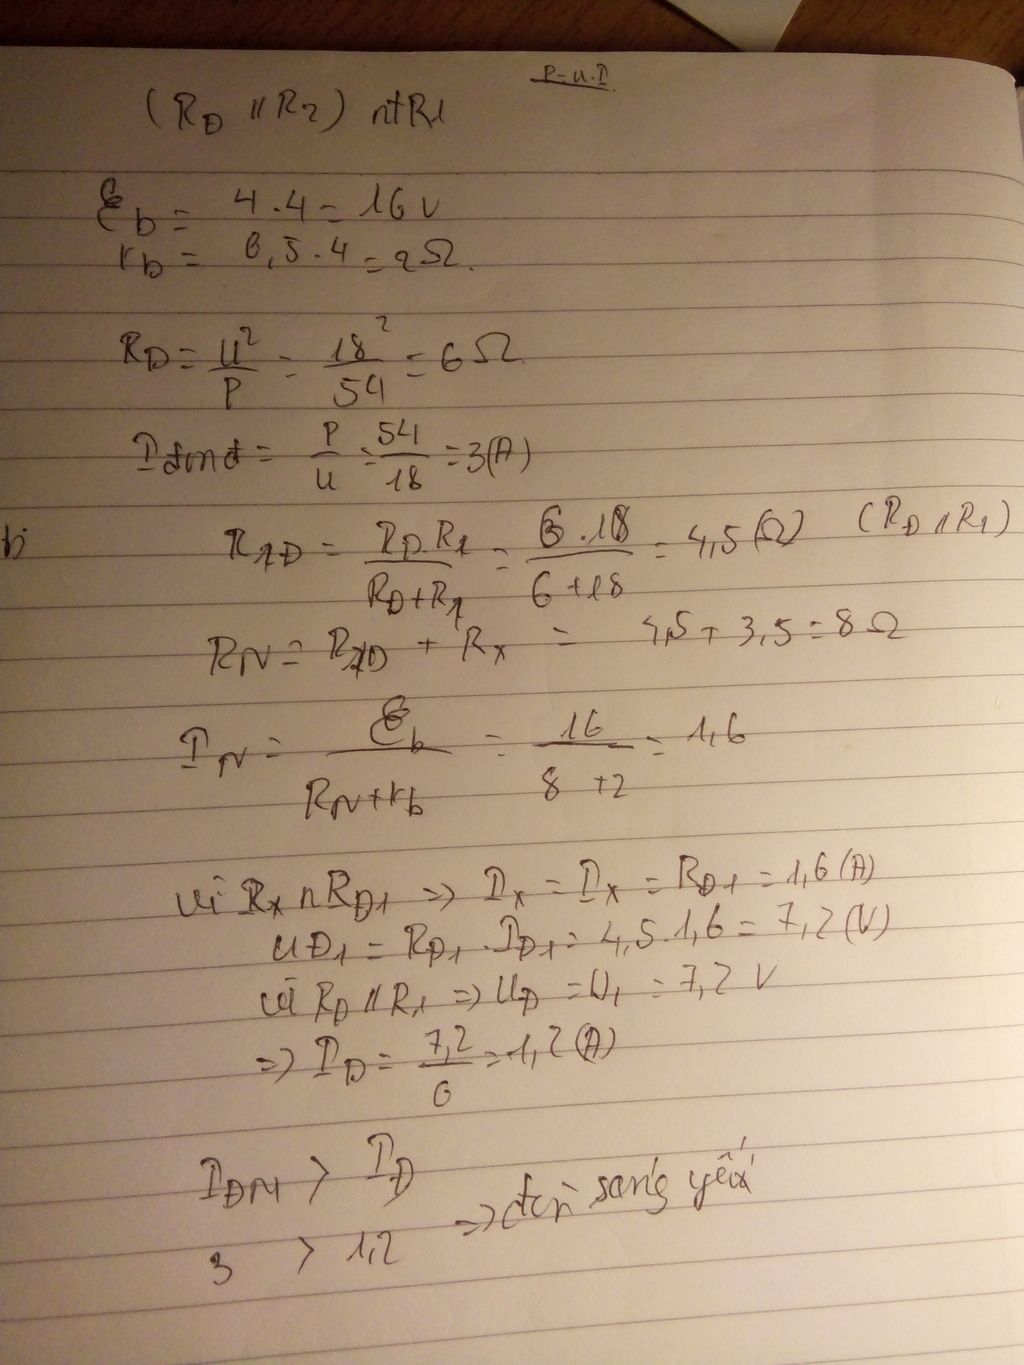 P=U.I
(RĐ // R2) nt R1
ℰb = 4.4 = 16 V
rb = 0,5.4 = 2Ω.
RĐ = U²/P = 18²/54 = 6Ω
Iđmđ = P/U = 54/18 = 3(A)
b) R1Đ = RĐ.R1/RĐ+R1 = 6.18/6+18 = 4,5(Ω) (RĐ // R1)
RN = R1Đ + Rx = 4,5 + 3,5 = 8Ω
IN = ℰb/RN+rb = 16/8+2 = 1,6
Vì Rx nt RĐ1 => Ix = Ix = RĐ1 = 1,6(A)
UĐ1 = RĐ1.IĐ1 = 4,5.1,6 = 7,2(V)
Vì RĐ // R1 => UĐ = U1 = 7,2 V
=> IĐ = 7,2/6 = 1,2(A)
IĐM > IĐ
=> đèn sáng yếu
3 > 1,2